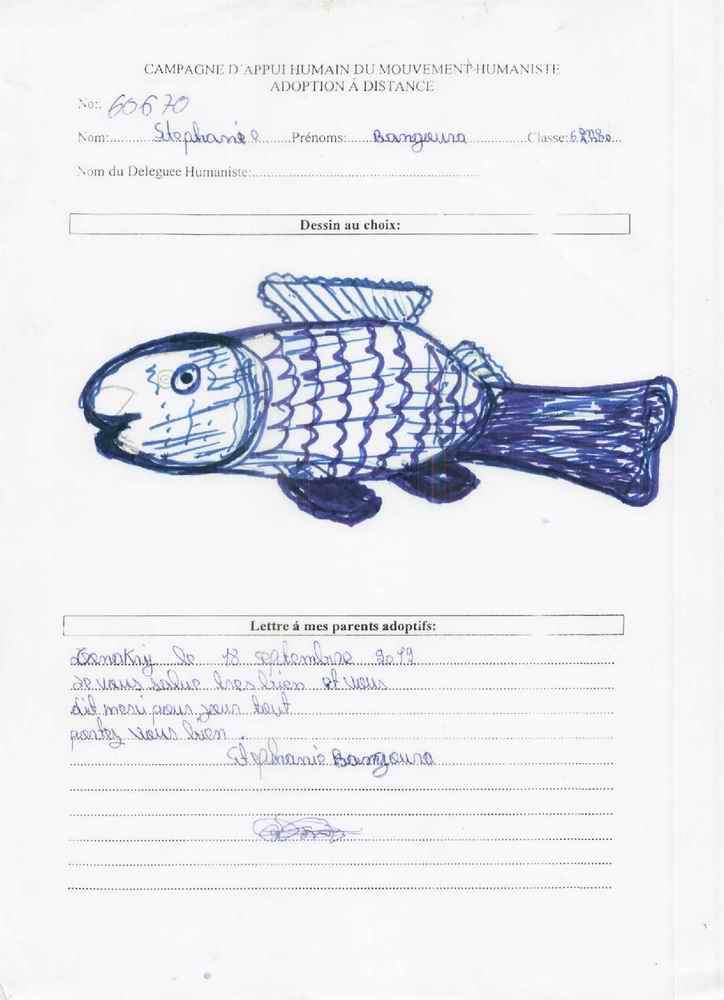 CAMPAGNE D´APPUI HUMAIN DU MOUVEMENT HUMANISTE
ADOPTION Á DISTANCE
No:. 60670
Nom:.......... Stephanie ........Prénoms:...... Bangoura ................Classe:
Nom du Deleguee Humaniste:
Dessin au choix:
Lettre á mes parents adoptifs:
le 18 septembre 2012
Je vous salue tres bien et vous
dit mersi pour pour tout
portez vous bien .
Stephanie Bangoura